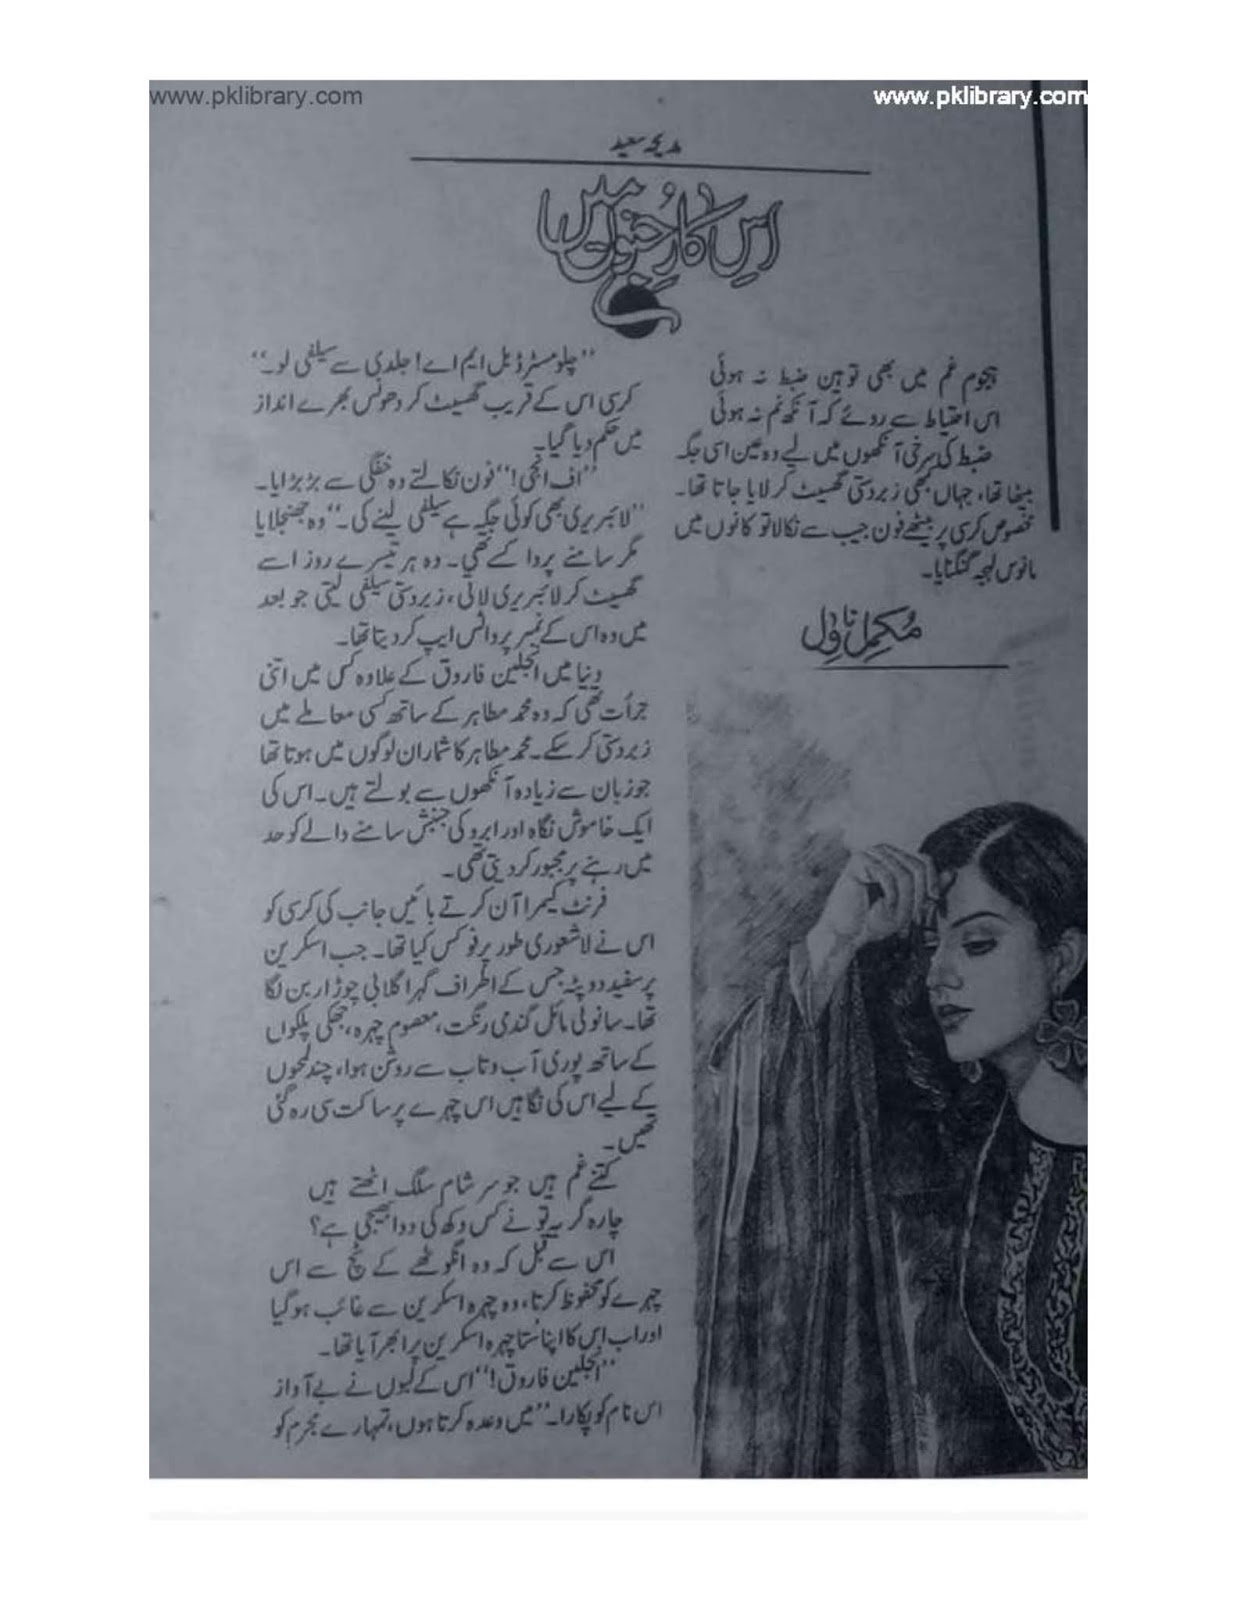 www.pklibrary.com
www.pklibrary.com
مدیحہ سعید
اس کارِ جنوں میں
ہجوم غم میں بھی توہین ضبط نہ ہوئی
اس احتیاط سے روئے کہ آنکھ نم نہ ہوئی
ضبط کی سرخی آنکھوں میں لیے وہ عین اسی جگہ
بیٹھا تھا، جہاں کبھی زبردستی گھسیٹ کر لایا جاتا تھا۔
مخصوص کرسی پر بیٹھے فون جیب سے نکالا تو کانوں میں
مانوس لہجہ گنگنایا۔
مکمل ناول
"چلو مسٹر ڈبل ایم اے! جلدی سے سیلفی لو۔"
کرسی اس کے قریب گھسیٹ کر دھونس بھرے انداز
میں حکم دیا گیا۔
"اف انجی!" فون نکالتے وہ خفگی سے بڑبڑایا۔
"لائبریری بھی کوئی جگہ ہے سیلفی لینے کی۔" وہ جھنجلایا
مگر سامنے پروا کسے تھی۔ وہ ہر تیسرے روز اسے
گھسیٹ کر لائبریری لاتی، زبردستی سیلفی لیتی جو بعد
میں وہ اس کے نمبر پر واٹس ایپ کر دیتا تھا۔
دنیا میں انجلین فاروق کے علاوہ کس میں اتنی
جرأت تھی کہ وہ محمد مطاہر کے ساتھ کسی معاملے میں
زبردستی کر سکے۔ محمد مطاہر کا شمار ان لوگوں میں ہوتا تھا
جو زبان سے زیادہ آنکھوں سے بولتے ہیں۔ اس کی
ایک خاموش نگاہ اور ابرو کی جنبش سامنے والے کو حد
میں رہنے پر مجبور کر دیتی تھی۔
فرنٹ کیمرا آن کرتے بائیں جانب کی کرسی کو
اس نے لاشعوری طور پر فوکس کیا تھا۔ جب اسکرین
پر سفید دوپٹہ جس کے اطراف گہرا گلابی چوڑا ربن لگا
تھا۔ سانولی مائل گندمی رنگت، معصوم چہرہ، جھکی پلکوں
کے ساتھ پوری آب و تاب سے روشن ہوا، چند لمحوں
کے لیے اس کی نگاہیں اس چہرے پر ساکت سی رہ گئی
تھیں۔
کتنے غم ہیں جو سر شام سلگ اٹھتے ہیں
چارہ گر یہ تو نے کس دکھ کی دوا بھیجی ہے؟
اس سے قبل کہ وہ انگوٹھے کے ٹچ سے اس
چہرے کو محفوظ کرتا، وہ چہرہ اسکرین سے غائب ہو گیا
اور اب اس کا اپنا ستا چہرہ اسکرین پر ابھر آیا تھا۔
"انجلین فاروق!" اس کے لبوں نے بے آواز
اس نام کو پکارا۔ "میں وعدہ کرتا ہوں، تمہارے مجرم کو